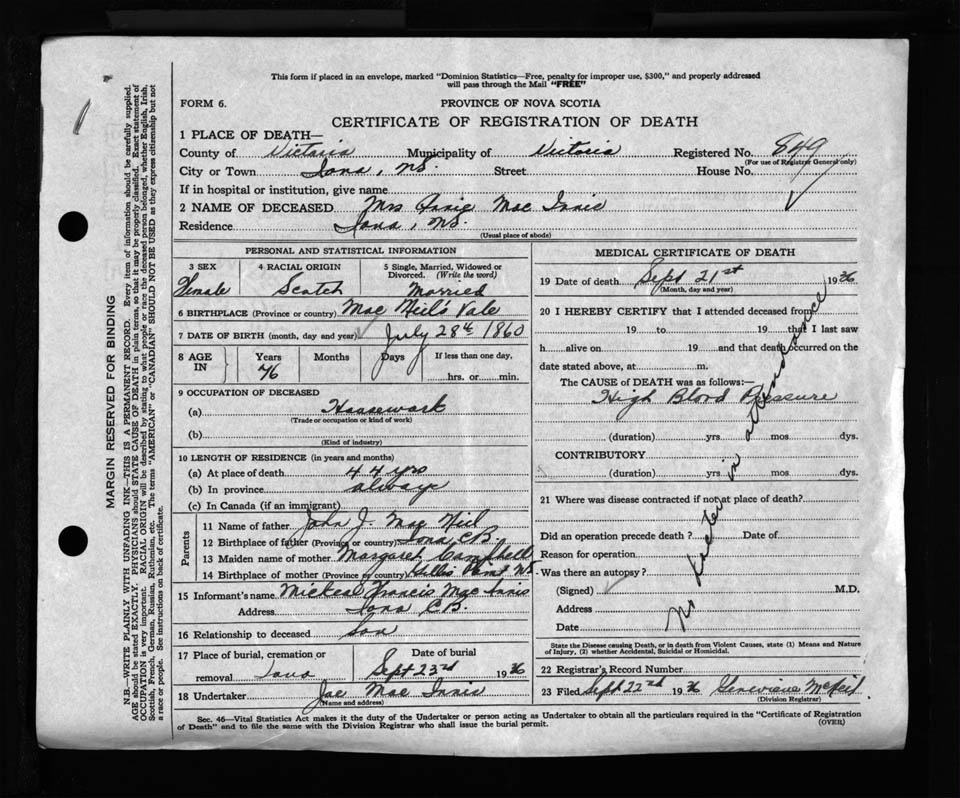 This form if placed in an envelope, marked "Dominion Statistics—Free, penalty for improper use, $300," and properly addressed
will pass through the Mail "FREE"
FORM 6.
PROVINCE OF NOVA SCOTIA
CERTIFICATE OF REGISTRATION OF DEATH
1 PLACE OF DEATH—
County of Victoria Municipality of Victoria Registered No. 849
(For use of Registrar General only)
City or Town Iona, N.S. Street House No.
If in hospital or institution, give name
2 NAME OF DECEASED Mrs Annie Mac Innis
Residence Iona, N.S.
(Usual place of abode)
PERSONAL AND STATISTICAL INFORMATION
3 SEX 4 RACIAL ORIGIN 5 Single, Married, Widowed or
Divorced. (Write the word)
Female Scotch Married
6 BIRTHPLACE (Province or country) Mac Neil's Vale
7 DATE OF BIRTH (month, day and year) July 28th 1860
8 AGE IN Years Months Days If less than one day,
76 hrs. or min.
9 OCCUPATION OF DECEASED
(a) Housework
(Trade or occupation or kind of work)
(b)
(Kind of industry)
10 LENGTH OF RESIDENCE (in years and months)
(a) At place of death 44 yrs
(b) In province always
(c) In Canada (if an immigrant)
Parents
11 Name of father John J. Mac Neil
12 Birthplace of father (Province or country) Iona, C.B.
13 Maiden name of mother Margaret Campbell
14 Birthplace of mother (Province or country) Gillis Point N.S.
15 Informant's name Mickeal Francis Mac Innis
Address Iona C.B.
16 Relationship to deceased Son
17 Place of burial, cremation or Date of burial
removal Iona Sept 23rd 1936
18 Undertaker Joe Mac Innis
(Name and address)
MEDICAL CERTIFICATE OF DEATH
19 Date of death Sept 21st 1936
(Month, day and year)
20 I HEREBY CERTIFY that I attended deceased from
19 to 19 that I last saw
h alive on 19 and that death occurred on the
date stated above, at m.
The CAUSE of DEATH was as follows:—
High Blood Pressure
(duration) yrs. mos. dys.
CONTRIBUTORY
(duration) yrs. mos. dys.
21 Where was disease contracted if not at place of death?
Did an operation precede death? Date of
Reason for operation
Was there an autopsy?
(Signed) M.D.
Address
Date
No Doctor in attendance
State the Disease causing Death, or in death from Violent Causes, state (1) Means and Nature
of Injury, (2) whether Accidental, Suicidal or Homicidal.
22 Registrar's Record Number
23 Filed Sept 22nd 1936 Genevieve McNeil
(Division Registrar)
Sec. 46—Vital Statistics Act makes it the duty of the Undertaker or person acting as Undertaker to obtain all the particulars required in the "Certificate of Registration
of Death" and to file the same with the Division Registrar who shall issue the burial permit.
(OVER)
MARGIN RESERVED FOR BINDING
N.B.—WRITE PLAINLY WITH UNFADING INK—THIS IS A PERMANENT RECORD. Every item of information should be carefully supplied.
AGE should be stated EXACTLY. PHYSICIANS should STATE CAUSE OF DEATH in plain terms, so that it may be properly classified. Exact statement of
OCCUPATION is very important. RACIAL ORIGIN will be described by stating to what people or race the deceased person belonged, whether English, Irish,
Scottish, French, German, Russian, Ruthenian, etc. The terms "AMERICAN" or "CANADIAN" SHOULD NOT BE USED as they express citizenship but not
a race or people. See instructions on back of certificate.